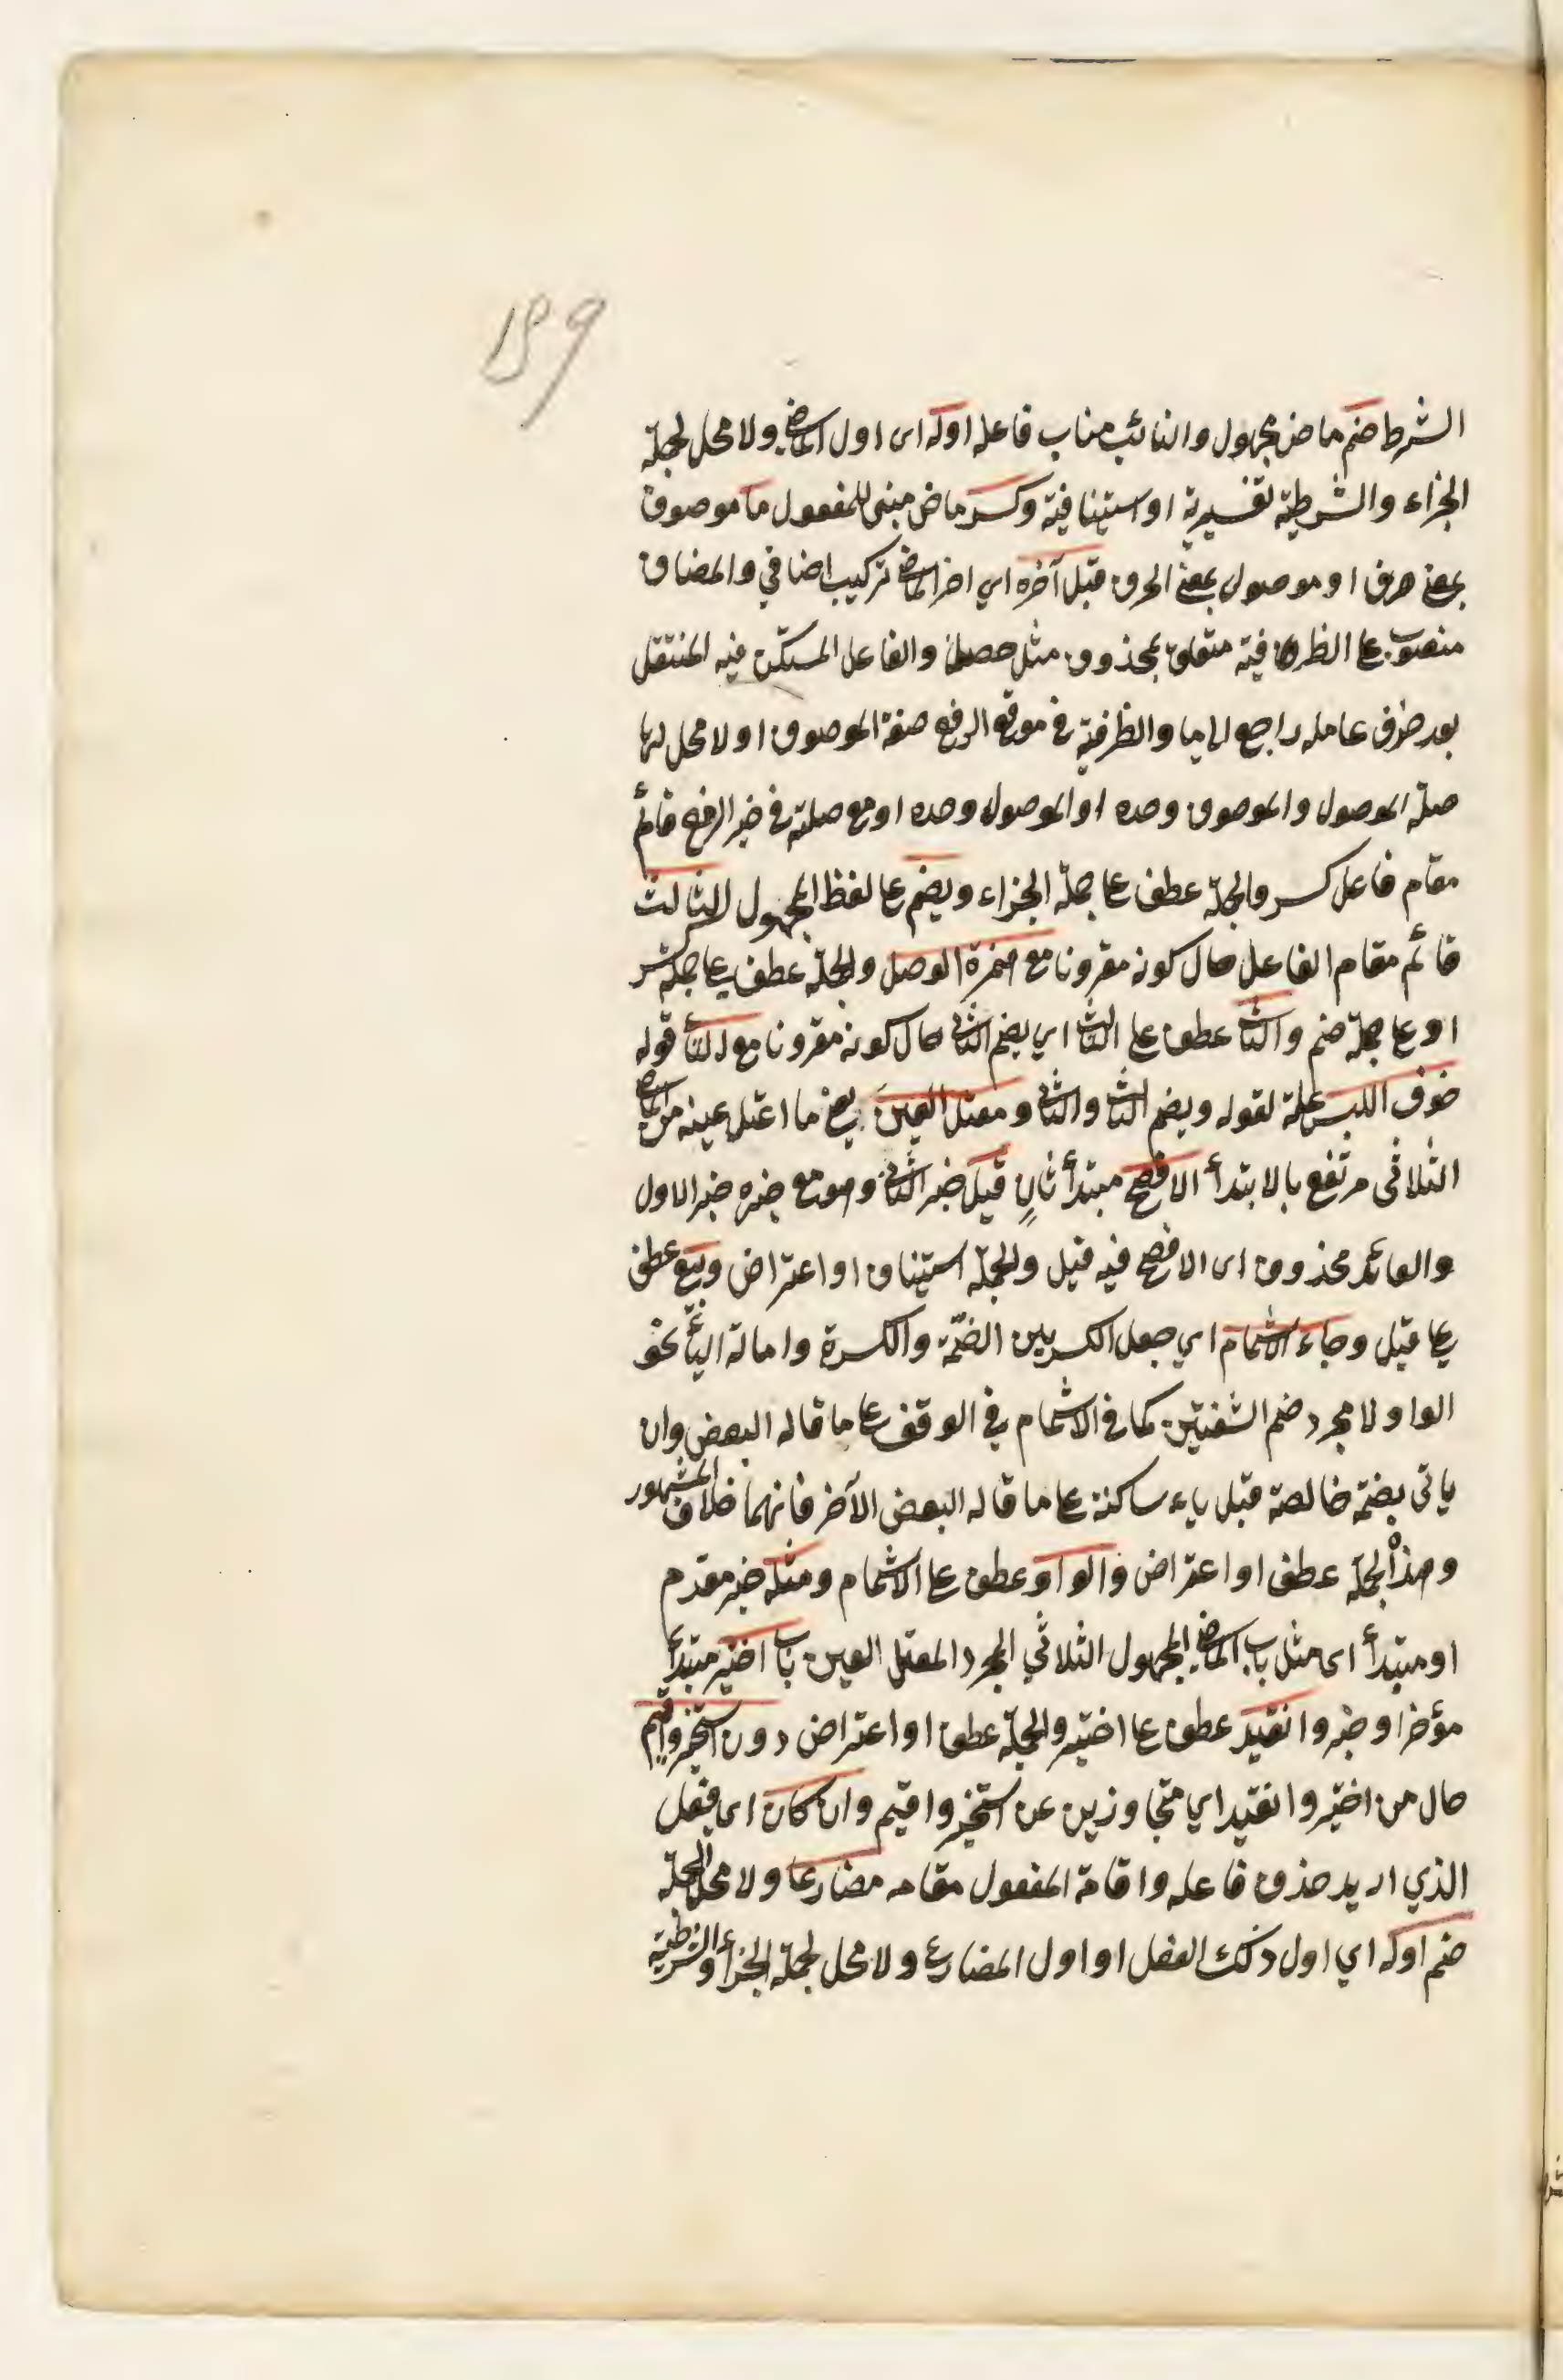 199
الشرط ضم ماض مجهول والنائب مناب فاعله اوله اى اول الماضي ولا محل لجملة
الجزاء والشرطية تفسيرية او استينافية وكسر ماض مبنى للمفعول ما موصوف
بمعنى حرف او موصول بمعنى الحرف قبل آخره اي اخر الماضي تركيب اضافي والمضاف
منصوب على الظرفية متعلق بمحذوف مثل حصل والفاعل المستكن فيه المنتقل
بعد حذف عامله راجع الى ما والظرفية في موقع الرفع صفة الموصوف او لا محل لها
صلة الموصول والموصوف وحده او الموصول وحده او مع صلته في حيز الرفع قائم
مقام فاعل كسر والجملة عطف على جملة الجزاء ويضم على لفظ المجهول الثالث
قائم مقام الفاعل حال كونه مقرونا مع همزة الوصل والجملة عطف على جملة كسر
او على جملة ضم والثاني عطف على الثالث اي يضم الثاني حال كونه مقرونا مع التاء قوله
خوف اللبس علة لقوله ويضم الثالث والثاني ومعتل العين يعني ما اعتل عينه من الماضي
الثلاثى مرتفع بالابتدأ الافصح مبتدأ ثانٍ قيل خبر الثاني وهو مع خبره خبر الاول
والعائد محذوف اى الافصح فيه قيل والجملة استيناف او اعتراض وبيع عطف
على قيل وجاء الاشمام اي جعل الكسر بين الضمّة والكسرة وامالة الياء نحو
الواو لا مجرد ضم الشفتين كما في الاشمام في الوقف على ما قاله البعض وان
ياتى بضمة خالصة قبل ياء ساكنة على ما قاله البعض الآخر فانهما خلاف المشهور
وهذا الجملة عطف او اعتراض والواو عطف على الاشمام ومثله خبر مقدم
او مبتدأ اى مثل باب الماضي المجهول الثلاثي المجرد المعتل العين باب اختير مبتدأ
مؤخر او خبر وانقيد عطف على اختير والجملة عطف او اعتراض دون استخير واقيم
حال من اختير وانقيد اي متجاوزين عن استخير واقيم وان كان اى فعل
الذي اريد حذف فاعله واقامة المفعول مقامه مضارعا ولا محل لجملة
ضم اوله اي اول ذلك الفعل او اول المضارع ولا محل لجملة الجزاء والشرطية